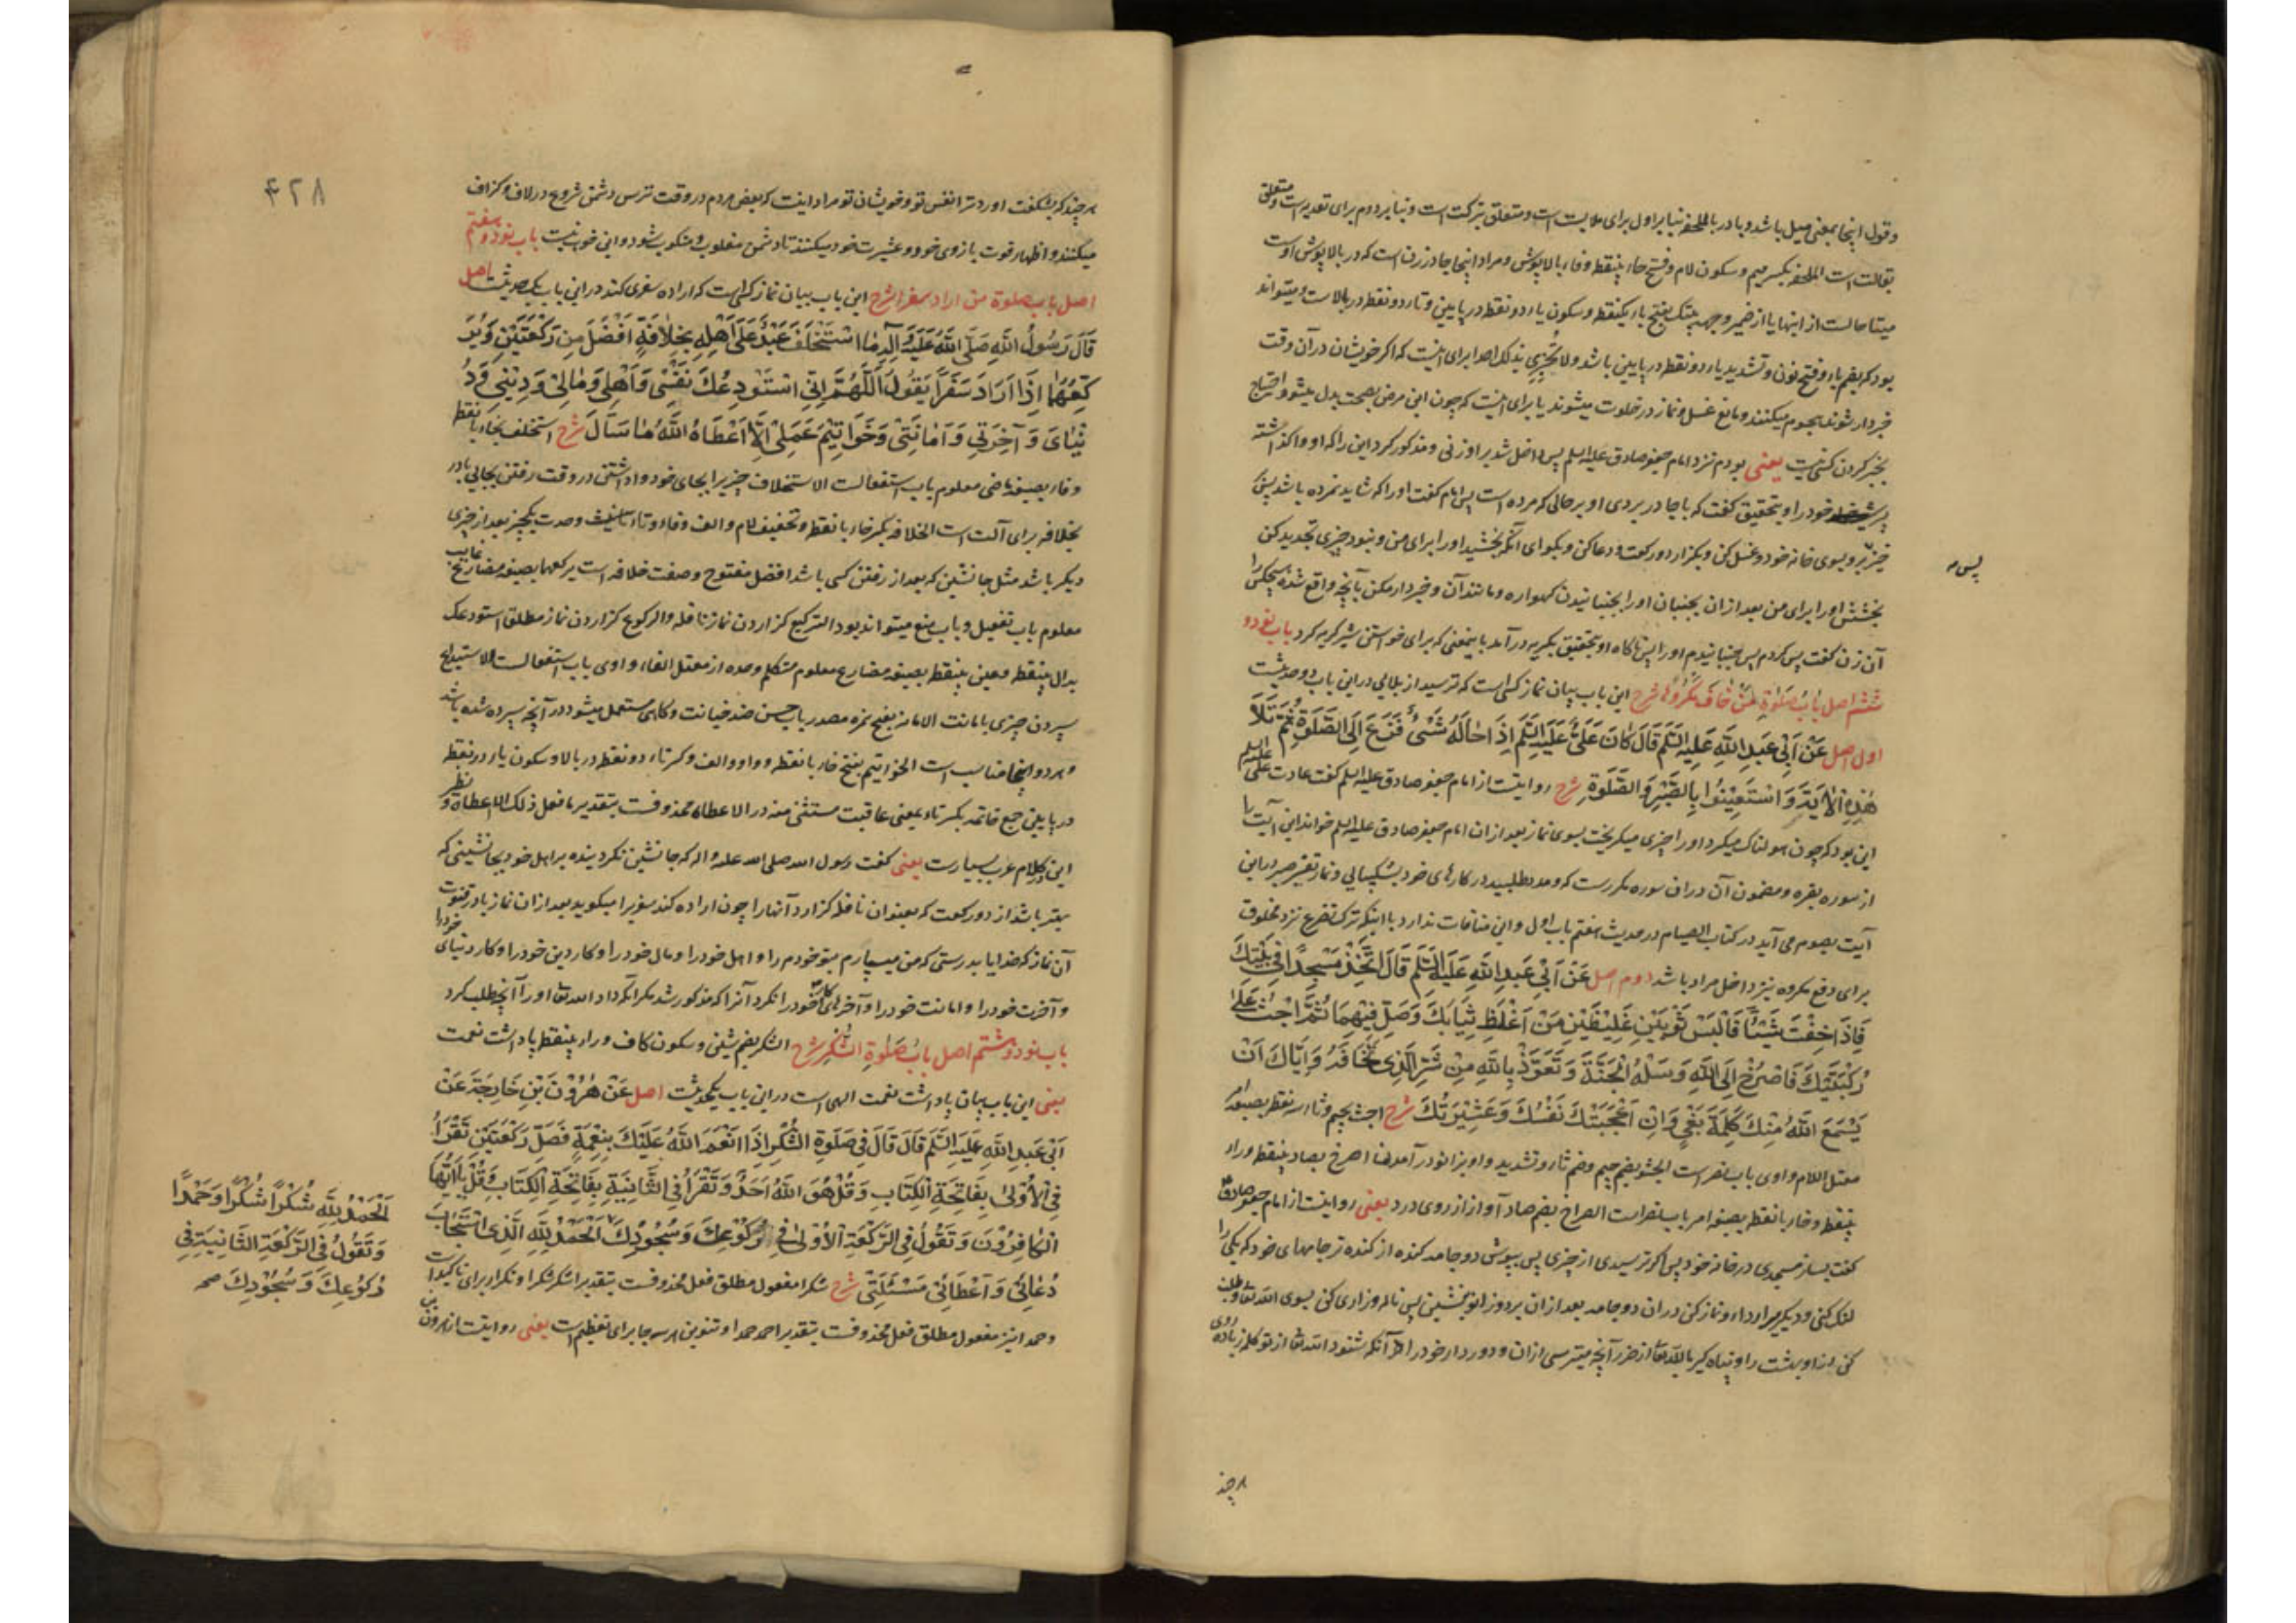 وقول اینجا بمعنی میل باشد و با در بالملحفه بنابر اول برای ملابست است و متعلق بترکت است و بنابر دوم برای تعدیه است و متعلق
بقالت است الملحفه بکسر میم و سکون لام و فتح حاء بینقطه و فاء بالاپوش و مراد اینجا چادر زن است که در بالا پوش اوست
میتا حالست از اینها یا از ضمیر وجهه بیتک بفتح باء یکنقطه و سکون یاء دو نقطه در پایین و تاء دو نقطه در بالاست و میتواند
بود که بضم باء و فتح نون و تشدید یاء دو نقطه در پایین باشد ولا تخبری بذلک احدا برای اینست که اگر خویشان در آن وقت
خبردار شوند هجوم میکنند و مانع غسل و نماز در خلوت میشوند یا برای اینست که چون این مرض بصحت بدل میشود احتیاج
بخبر کردن کسی نیست یعنی بودم نزد امام جعفر صادق علیه السلم پس داخل شد بر او زنی و مذکور کرد این را که او واگذاشته
پسر خود را و بتحقیق گفت که با چادر بر روی او بر حالی که مرده است پس امام گفت اورا که شاید نمرده باشد پس
خیز برو بسوی خانه خود و غسل کن و بگزار دو رکعت و دعا کن و بگو ای آنکه بخشید اورا برای من و نبود چیزی تجدید کن
پس م
بخشش اورا برای من بعد از آن بجنبان اورا بجنبانیدن گهواره و مانند آن و خبردار مکن بآنچه واقع شده هیچکس را
آن زن گفت پس کردم پس بجنبانیدم اورا پس ناگاه او بتحقیق بگریه در آمد باینمعنی که برای خواستن شیر گریه کرد باب نود و
ششم اصل بَابُ صَلٰوةِ مَنْ خَافَ مَكْرُوهًا شرح این باب بیان نماز کسی است که ترسید از بلایی در این باب دو حدیثست
اول اصل عَنْ اَبِي عَبدِ اللهِ عَلَيْهِ السَّلَم قَالَ كَانَ عَلِيٌّ عَلَيْهِ السَّلَم اِذَا هَالَهُ شَيْءٌ فَزَعَ اِلَى الصَّلٰوةِ ثُمَّ تَلَا
هٰذِهِ الْاٰيَةَ وَاسْتَعِينُوا بِالصَّبْرِ وَالصَّلٰوةِ شرح روایتست از امام جعفر صادق علیه السلم گفت عادت علی علیه السلم
این بود که چون هولناک میکرد اورا چیزی میگریخت بسوی نماز بعد از آن امام جعفر صادق علیه السلم خواند این آیت را
از سوره بقره و مضمون آن در آن سوره مکررست که و مدد طلبید در کارهای خود بشکیبایی و نماز تفسیر صبر در این
آیت بصوم می آید در کتاب الصیام در حدیث هفتم باب اول و این منافات ندارد با اینکه ترک تضرع نزد مخلوق
برای دفع مکروه نیز داخل مراد باشد دوم اصل عَنْ اَبِي عَبدِ اللهِ عَلَيْهِ السَّلَم قَالَ اتَّخِذْ مَسْجِدًا فِي بَيْتِكَ
فَاِذَا خِفْتَ شَيْئًا فَالْبَسْ ثَوْبَيْنِ غَلِيظَيْنِ مِنْ اَغْلَظِ ثِيَابِكَ وَصَلِّ فِيهِمَا ثُمَّ اجْثُ عَلٰى
رُكْبَتَيْكَ فَاصْرُخْ اِلَى اللهِ وَسَلْهُ الْجَنَّةَ وَتَعَوَّذْ بِاللهِ مِنْ شَرِّ الَّذِي تَخَافُهُ وَاِيَّاكَ اَنْ
يَسْمَعَ اللهُ مِنْكَ كَلِمَةَ بَغْيٍ وَاِنْ اَعْجَبَتْكَ نَفْسُكَ وَعَشِيْرَتُكَ شرح اجث بجیم و ثاء سه نقطه بصیغه امر
معتل اللام واوی باب نصر است الجثو بضم جیم و ضم ثاء و تشدید واو بزانو در آمدن اصرخ بصاد بینقطه و راء
بینقطه و خاء با نقطه بصیغه امر باب نصر است الصراخ بضم صاد آواز از روی درد یعنی روایتست از امام جعفر صادق ع
گفت بساز مسجدی در خانه خود پس اگر ترسیدی از چیزی پس بپوش دو جامه گنده از گنده تر جامهای خود که یکی را
لنگ کنی و دیگریرا رداء و نماز کن در آن دو جامه بعد از آن بر دو زانو بنشین پس ناله و زاری کن بسوی الله تعا و طلب
کن از او بهشت را و پناه گیر بالله تعا از ضرر آنچه میترسی از آن و دور دار خود را از آنکه شنود الله تعا از تو کلمه زیاده روی
هرچند
۴۲۸
هرچند که بشگفت آورد ترا نفس تو و خویشان تو مراد اینست که بعض مردم در وقت ترس دشمن شروع در لاف و گزاف
میکنند و اظهار قوت بازوی خود و عشیرت خود میکنند تا دشمن مغلوب و منکوب شود و این خوب نیست باب نود و هفتم
اصل باب صلوة من اراد سفرا شرح این باب بیان نماز کسی است که اراده سفری کند در این باب یک حدیثست اصل
قَالَ رَسُولُ اللهِ صَلَّى اللهُ عَلَيْهِ وَآلِهِ مَا اسْتَخْلَفَ عَبْدٌ عَلٰى اَهْلِهِ بِخِلَافَةٍ اَفْضَلَ مِنْ رَكْعَتَيْنِ وَيُرَ
كِّعُهَا اِذَا اَرَادَ سَفَرًا يَقُولُ اَللّٰهُمَّ اِنِّي اسْتَوْدِعُكَ نَفْسِي وَاَهْلِي وَمَالِي وَدِيْنِي وَدُ
نْيَايَ وَآخِرَتِي وَاَمَانَتِي وَخَوَاتِيْمَ عَمَلِي اِلَّا اَعْطَاهُ اللهُ مَا سَأَلَ شرح استخلف بخاء با نقطه
و فاء بصیغه ماضی معلوم باب استفعالست الاستخلاف چیزیرا بجای خود واداشتن در وقت رفتن بجایی با در
بخلافه برای آلت است الخلافه بکسر خاء با نقطه و تخفیف لام و الف و فاء و تاء تانیث وحدت یکچیز بعد از چیزی
دیگر باشد مثل جانشین که بعد از رفتن کسی باشد افضل مفتوح و صفت خلافه است یرکعهما بصیغه مضارع غایب
معلوم باب تفعیل و باب منع میتواند بود الترکیع گزاردن نماز نافله و الرکوع گزاردن نماز مطلق استودعک
بدال بینقطه و عین بینقطه بصیغه مضارع معلوم متکلم وحده از معتل الفاء واوی باب استفعالست الاستیداع
سپردن چیزی بامانت الامانه بفتح همزه مصدر باب حسن ضد خیانت و گاهی مستعمل میشود در آنچه سپرده شده باشد
و هر دو اینجا مناسب است الخواتیم بفتح خاء با نقطه و واو و الف و کسر تاء دو نقطه در بالا و سکون یاء دو نقطه
در پایین جمع خاتمه بکسر تاء بمعنی عاقبت مستثنی منه در الا اعطاه محذوفست بتقدیر ما فعل ذلک الا اعطاه و نظر
این در کلام عرب بسیارست یعنی گفت رسول الله صلی الله علیه و اله که جانشین نکرد بنده بر اهل خود بجانشینی که
بهتر باشد از دو رکعت که بعنوان نافله گزارد آنها را چون اراده کند سفریرا میگوید بعد از آن نماز یا در قنوت
آن نماز که خدایا بدرستی که من میسپارم بتو خودم را و اهل خود را و مال خود را و کار دین خود را و کار دنیای خود را
و آخرت خود را و امانت خود را و آخرهای کار خود را نکرد آنرا که مذکور شد مگر آنکه داد الله تعا اورا آنچه طلب کرد
باب نود و هشتم اصل بَابُ صَلٰوةِ الشُّكْرِ شرح الشکر بضم شین و سکون کاف و راء بینقطه پاداشت نعمت
یعنی این باب بیان پاداشت نعمت الهی است در این باب یکحدیثست اصل عَنْ هٰرُوْنَ بْنِ خَارِجَةَ عَنْ
اَبِي عَبدِ اللهِ عَلَيْهِ السَّلَم قَالَ قَالَ فِي صَلٰوةِ الشُّكْرِ اِذَا اَنْعَمَ اللهُ عَلَيْكَ بِنِعْمَةٍ فَصَلِّ رَكْعَتَيْنِ تَقْرَأُ
فِي الْاُوْلٰى بِفَاتِحَةِ الْكِتَابِ وَقُلْ هُوَ اللهُ اَحَدٌ وَتَقْرَأُ فِي الثَّانِيَةِ بِفَاتِحَةِ الْكِتَابِ وَقُلْ يَا اَيُّهَا
الْكَافِرُوْنَ وَتَقُولُ فِي الرَّكْعَةِ الْاُوْلٰى فِي رُكُوْعِكَ وَسُجُوْدِكَ اَلْحَمْدُ لِلّٰهِ الَّذِي اسْتَجَابَ
دُعَائِي وَاَعْطَانِي مَسْئَلَتِي شرح شکرا مفعول مطلق فعل محذوفست بتقدیر اشکر شکرا و تکرار برای تاکید است
و حمدا نیز مفعول مطلق فعل محذوفست بتقدیر احمد حمدا و تنوین هر سه جا برای تعظیم است یعنی روایتست از هرون بن
اَلْحَمْدُ لِلّٰهِ شُكْرًا شُكْرًا وَحَمْدًا
وَتَقُوْلُ فِي الرَّكْعَةِ الثَّانِيَةِ فِي
رُكُوْعِكَ وَسُجُوْدِكَ صح